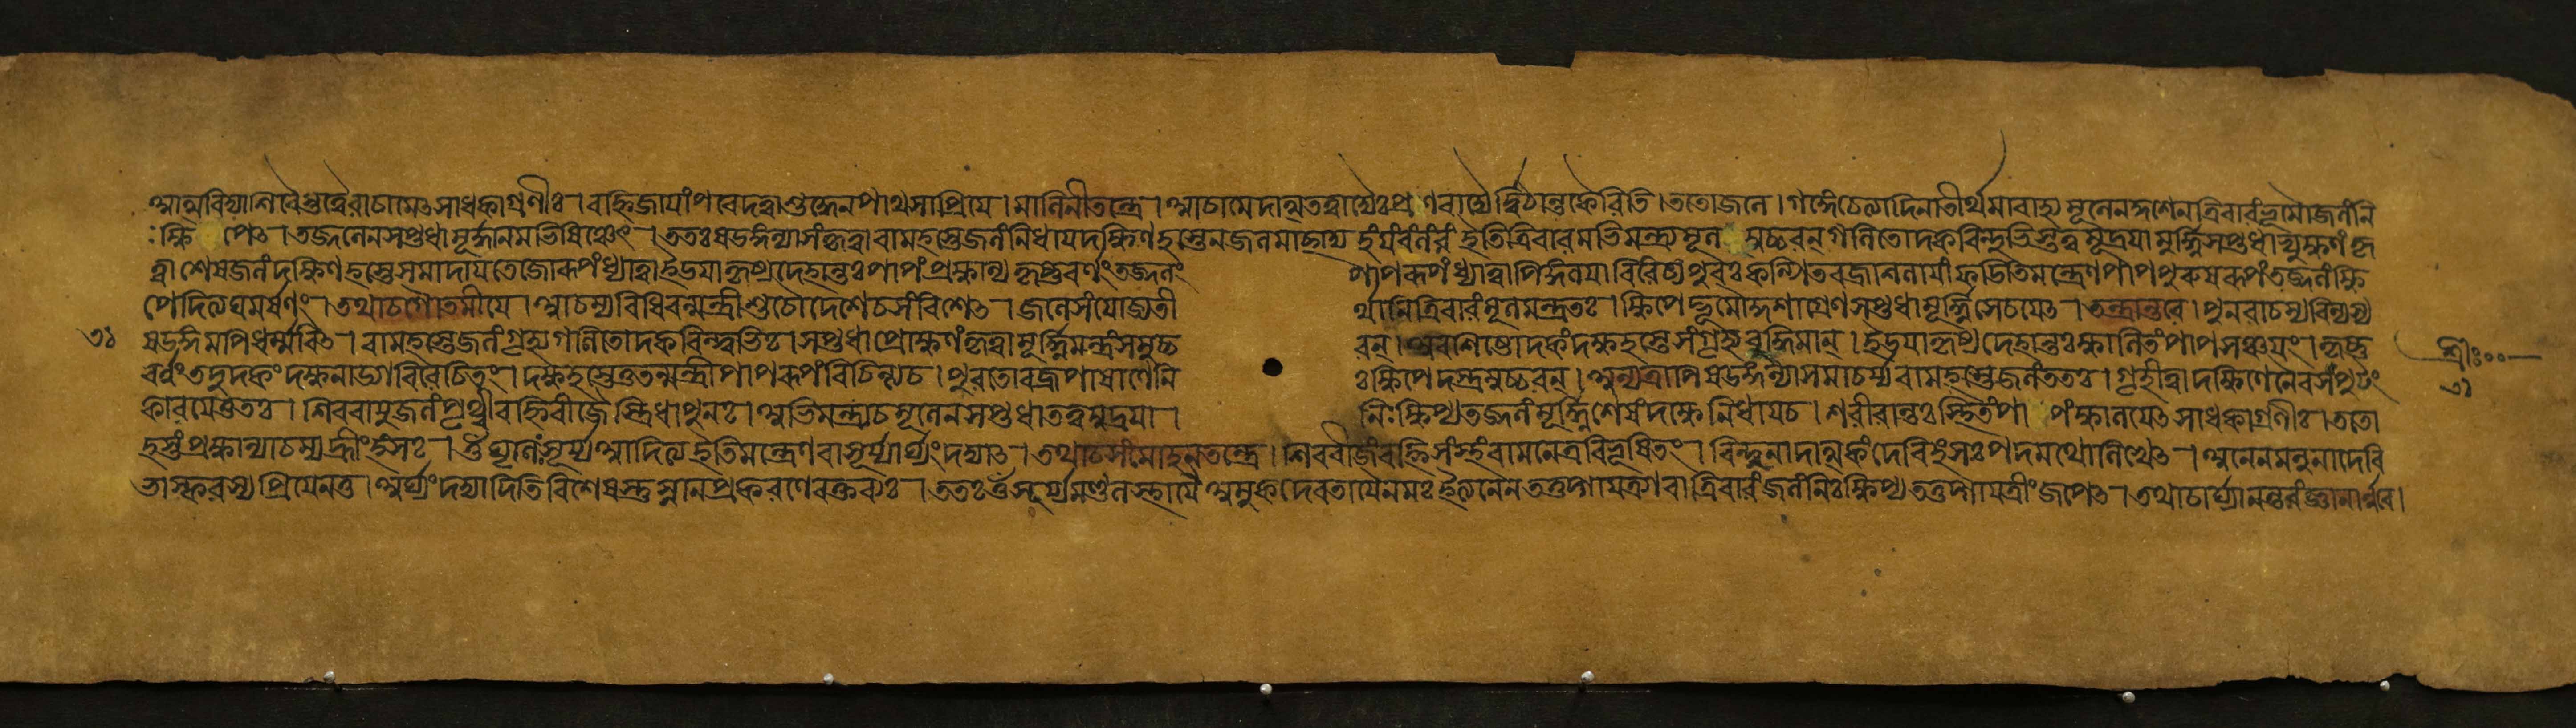 আত্মবিদ্যাশিবৈস্তত্ত্বৈরাচামেৎসাধকাগ্রণীঃ। বহ্নিজায়াংপঠেদন্তে শুদ্ধেনপাথসাপ্রিয়ে। মালিনীতন্ত্রে। আচামেদাত্মতত্ত্বাদ্যৈঃপ্রণবাদ্যৈর্দ্বিঠান্তকৈরিতি। ততোজলে। গঙ্গেচেত্যাদিনাতীর্থমাবাহ্য মূলেনকুশেনত্রিবারংভূমৌজলংনি
ঃক্ষিপেৎ। তজ্জলেনসপ্তধামূর্দ্ধানমভিষিঞ্চেৎ। ততঃষডঙ্গন্যাসংকৃত্বা বামহস্তেজলংনিধায়দক্ষিণহস্তেনজলমাচ্ছাদ্য হংযংবংলংরং ইতিত্রিবারমভিমন্ত্র্য মূলমুচ্চরন্ গলিতোদকবিন্দুভিস্তত্ত্বমুদ্রয়া মূর্দ্ধ্নিসপ্তধাভ্যুক্ষণংকৃ
ত্বা শেষজলংদক্ষিণহস্তেসমাদায়তেজোরূপংধ্যাত্বা ইডয়াকৃষ্যদেহান্তঃপাপংপ্রক্ষাল্য কৃষ্ণবর্ণংতজ্জলং পাপরূপংধ্যাত্বাপিঙ্গলয়াবিরিচ্য পুরঃকল্পিতবজ্রশিলায়াং ফডিতিমন্ত্রেণপাপপুরুষরূপংতজ্জলংক্ষি
পেদিত্যঘমর্ষণং। তথাচগৌতমীয়ে। আচম্যবিধিবন্মন্ত্রীশুচৌদেশেচসংবিশেৎ। জলেসংযোজ্যতী র্থানিত্রিবারংমূলমন্ত্রতঃ। ক্ষিপেদ্ভূমৌকুশাগ্রেণসপ্তধামূর্দ্ধ্নিসেচয়েৎ। তন্ত্রান্তরে। পুনরাচম্যবিন্যস্য
ষডঙ্গমপিধর্ম্মবিৎ। বামহস্তেজলংগৃহ্যগলিতোদকবিন্দুভিঃ। সপ্তধাপ্রোক্ষণংকৃত্বা মূর্দ্ধ্নিমন্ত্রংসমুচ্চ রন্। অবশিষ্টোদকংদক্ষহস্তেসংগৃহ্যবুদ্ধিমান্। ইডয়াকৃষ্যদেহান্তঃক্ষালিতংপাপসঞ্চয়ং। কৃষ্ণ
বর্ণংতদুদকংদক্ষনাড্যাবিরেচিতং। দক্ষহস্তেতুতন্মন্ত্রীপাপরূপংবিচিন্ত্যচ। পুরতোবজ্রপাষাণেনি ঃক্ষিপেদস্ত্রমুচ্চরন্। অন্যত্রাপিষডঙ্গন্যাসমাচর্য্যবামহস্তেজলংততঃ। গৃহীত্বাদক্ষিণেনৈবসংপুটং
কারয়েত্ততঃ। শিববায়ুজলংপৃথ্বীবহ্নিবীজৈস্ত্রিধাপুনঃ। অভিমন্ত্র্যচমূলেনসপ্তধাতত্ত্বমুদ্রয়া। নিঃক্ষিপ্যতজ্জলংমূর্দ্ধ্নিশেষংদক্ষেনিধায়চ। শরীরান্তঃস্থিতংপাপংক্ষালয়েৎসাধকাগ্রণীঃ। ততো
হস্তংপ্রক্ষাল্যাচম্যহ্রীংহংসঃ। ওঁঘৃণিঃসূর্য্যআদিত্যইতিমন্ত্রেণবাসূর্য্যার্ঘ্যংদদ্যাৎ। তথাচসংমোহনতন্ত্রে। শিববীজংবহ্নিসংস্থংবামনেত্রবিভূষিতং। বিন্দুনাদাত্মকংদেবিহংসঃপদমথোলিখেৎ। অনেনমনুনাদেবি
ভাস্করস্যপ্রিয়েনতু। অর্ঘ্যংদদ্যাদিতিবিশেষস্তুস্নানপ্রকরণেবক্তব্যঃ। ততঃওঁসূর্য্যমণ্ডলস্থায়ৈ অমুকদেবতায়ৈনমঃইত্যনেনতত্তদ্গায়ত্র্যাবাত্রিবারংজলংনিঃক্ষিপ্যতত্তদ্গায়ত্রীংজপেৎ। তথাচার্ঘ্যানন্তরংজ্ঞানার্ণবে।